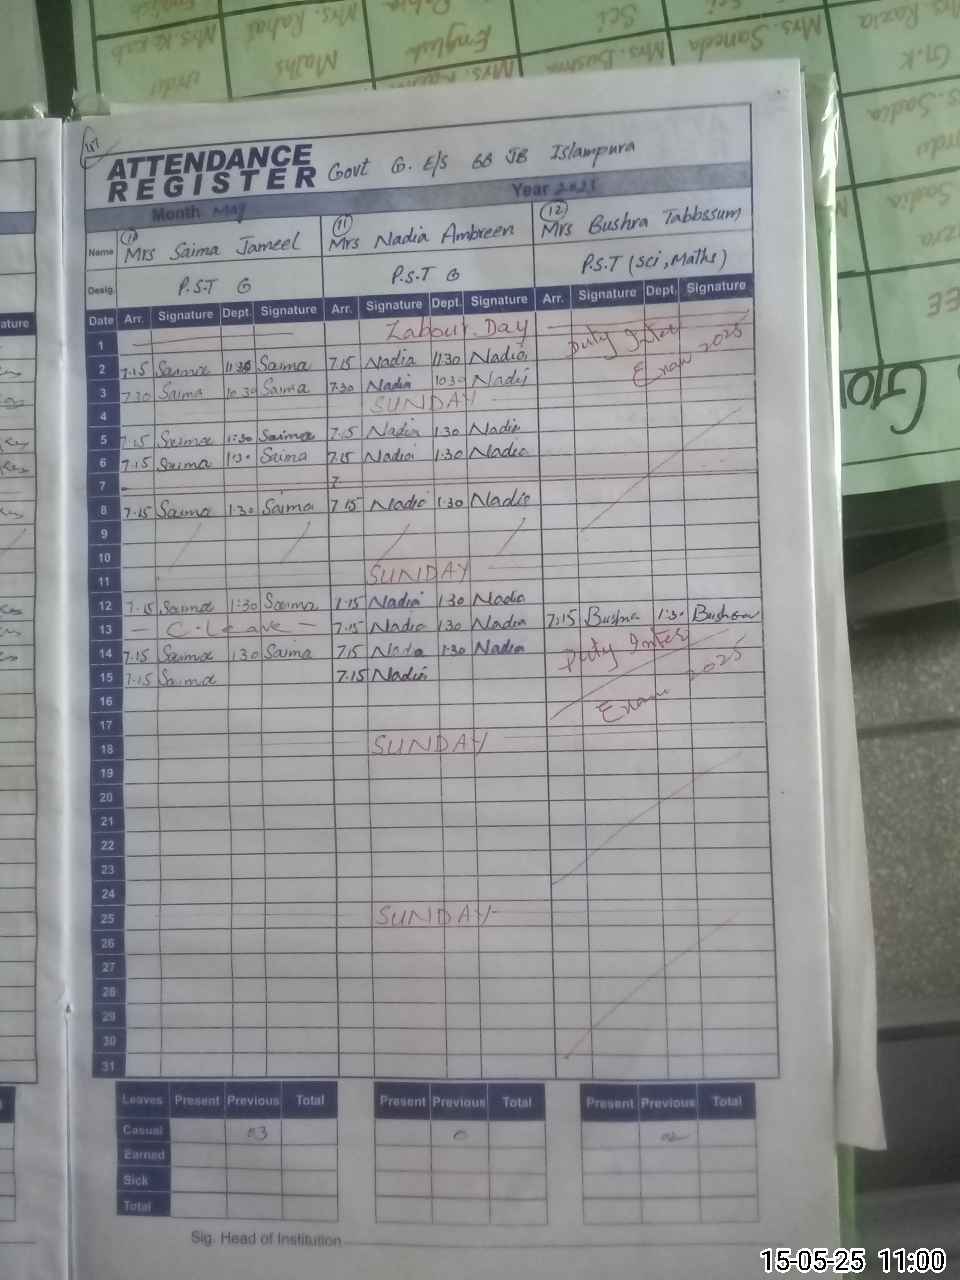 ATTENDANCE
REGISTER
Govt G. E/S 66 JB Islampura
Month May Year 2025
Name Mrs Saima Jameel (11) Mrs Nadia Ambreen (12) Mrs Bushra Tabbssum
Desig. P.S.T G P.S.T G P.S.T (Sci, Maths)
Date Arr. Signature Dept. Signature Arr. Signature Dept. Signature Arr. Signature Dept. Signature
1 Labour Day Duty Inter
2 7.15 Saima 11:30 Saima 7.15 Nadia 11:30 Nadia Exam 2025
3 7.30 Saima 10:30 Saima 7.30 Nadia 10:30 Nadia
4 SUNDAY
5 7.15 Saima 1:30 Saima 7.15 Nadia 1:30 Nadia
6 7.15 Saima 1:30 Saima 7.15 Nadia 1:30 Nadia
7 7
8 7.15 Saima 1:30 Saima 7.15 Nadia 1:30 Nadia
9
10
11 SUNDAY
12 7.15 Saima 1:30 Saima 7.15 Nadia 1:30 Nadia
13 - C. Leave - 7.15 Nadia 1:30 Nadia 7:15 Bushra 1:30 Bushra
14 7.15 Saima 1:30 Saima 7.15 Nadia 1:30 Nadia Duty Inter
15 7.15 Saima 7.15 Nadia
16 Exam 2025
17
18 SUNDAY
19
20
21
22
23
24
25 SUNDAY
26
27
28
29
30
31
Leaves Present Previous Total Present Previous Total Present Previous Total
Casual 03 0 02
Earned
Sick
Total
Sig. Head of Institution
15-05-25 11:00